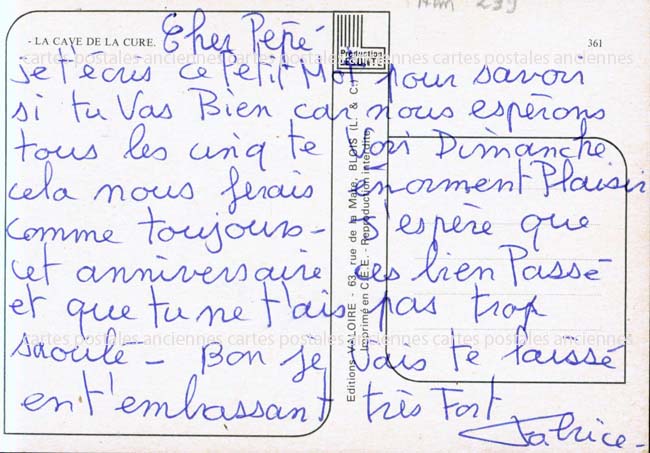 Hm 239
- LA CAVE DE LA CURE.
361
Production VALOIRE
Cher Pépé
je t'écris ce Petit Mot pour savoir
si tu Vas Bien car nous espérons
tous les cinq te voir Dimanche
cela nous ferais énorment Plaisir
comme toujours - J'espère que
cet anniversaire ces bien Passé
et que tu ne t'ais pas trop
saoulé - Bon je vais te laissé
en t'embassant très Fort
Fabrice -
Editions VALOIRE - 63, rue de la Mare, BLOIS (L. & C.)
Imprimé en C.E.E. - Reproduction interdite
cartes postales anciennes cartes postales anciennes cartes postales anciennes
cartes postales anciennes cartes postales anciennes cartes postales anciennes
cartes postales anciennes cartes postales anciennes cartes postales anciennes